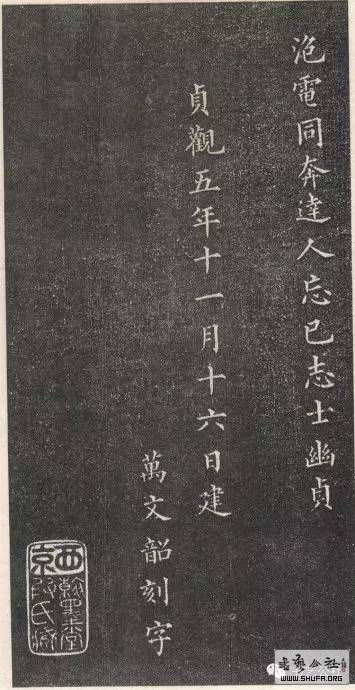 泡電同奔達人忘己志士幽貞
貞觀五年十一月十六日建
萬文韶刻字
西京
书艺公社
WWW.SHUFA.ORG